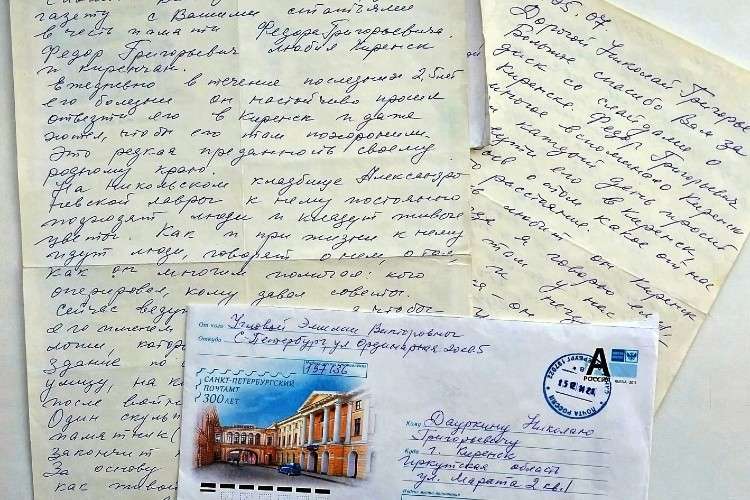 газету с Вашими статьями
в честь памяти Федора Григорьевича.
Федор Григорьевич любил Киренск
и киренчан.
Ежедневно в течение последних 2,5 лет
его болезни он настойчиво просил
отвезти его в Киренск и даже
хотел, чтобы его там похоронили.
Это редкая преданность своему
родному краю.
На Никольском кладбище Александро
Невской лавры к нему постоянно
подходят люди и кладут живые
цветы. Как и при жизни к нему
идут люди, говорят о нем, о том,
как он многим помогал: кого
оперировал, кому давал советы.
Сейчас ведут чтобы
его именем
логии, котор
здание по
улицу, на ко
после войн
Один скуль
памятник
закончит
За основу
как живой
25.07.
Дорогой Николай Григорьев
Большое спасибо Вам за
диск со слайдами о
Киренске. Федор Григорьевич
вспоминал Киренск
и каждый день просил
его в Киренск,
о том какое от нас
расстояние.
любит он Киренск
я говорю ему
там у нас
От кого Угловой Эмилии Викторовны
Откуда С-Петербург ул Ординарная 20 кв 5
197136
САНКТ-ПЕТЕРБУРГСКИЙ
ПОЧТАМТ
300 ЛЕТ
А
РОССИЯ
ПОЧТА РОССИИ
Кому Дауркину Николаю
Григорьевичу
Куда г. Киренск
Иркутская область
ул. Марата 2 кв.1